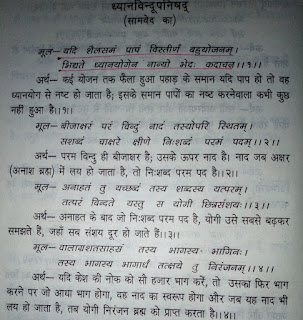 ध्यानविन्दूपनिषद्
(सामवेद का)
मूल– यदि शैलसमं पापं विस्तीर्णं बहुयोजनम्।
भिद्यते ध्यानयोगेन नान्यो भेदः कदाचन।।१।।
अर्थ– कई योजन तक फैला हुआ पहाड़ के समान यदि पाप हो तो वह
ध्यानयोग से नष्ट हो जाता है; इसके समान पापों का नष्ट करनेवाला कभी कुछ
नहीं हुआ है।।१।।
मूल– बीजाक्षरं परं विन्दुं नादं तस्योपरि स्थितम्।
सशब्दं चाक्षरे क्षीणे निःशब्दं परमं पदम्।।२।।
अर्थ– परम विन्दु ही बीजाक्षर है; उसके ऊपर नाद है। नाद जब अक्षर
(अनाश ब्रह्म) में लय हो जाता है, तो निःशब्द परम पद है।।२।।
मूल– अनाहतं तु यच्छब्दं तस्य शब्दस्य यत्परम्।
तत्परं विन्दते यस्तु स योगी छिन्नसंशयः।।३।।
अर्थ– अनाहत के बाद जो निःशब्द परम पद है, योगी उसे सबसे बढ़कर
समझते हैं, जहाँ सब संशय दूर हो जाते हैं।।३।।
मूल– वालाग्रशतसाहस्रं तस्य भागस्य भागिनः।
तस्य भागस्य भागार्धं तत्क्षये तु निरंजनम्।।४।।
अर्थ– यदि केश की नोक को सौ हजार भाग करें, तो उसका फिर भाग
करने पर जो आधा भाग होगा, वह नाद का स्वरूप होगा और जब यह नाद भी
लय हो जाता है, तब योगी निरंजन ब्रह्म को प्राप्त करता है।।४।।